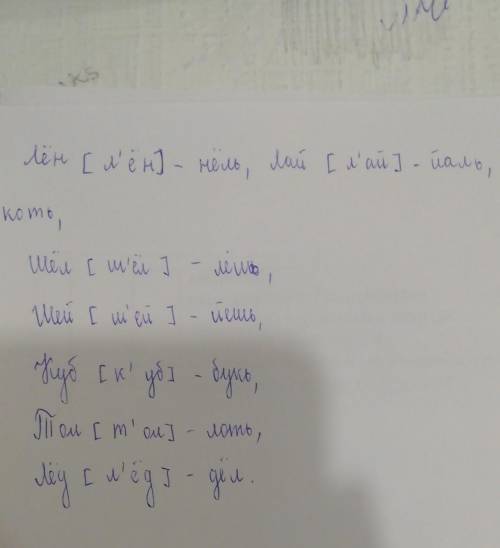 Лён [л'ён] - нёль, Лай [л'ай] - йаль,
коть,
Шёл [ш'ёл] - лёшь,
Шей [ш'ей] - йешь,
Куб [к'уб] - букь,
Тол [т'ол] - лоть,
Лёд [л'ёд] - дёл.